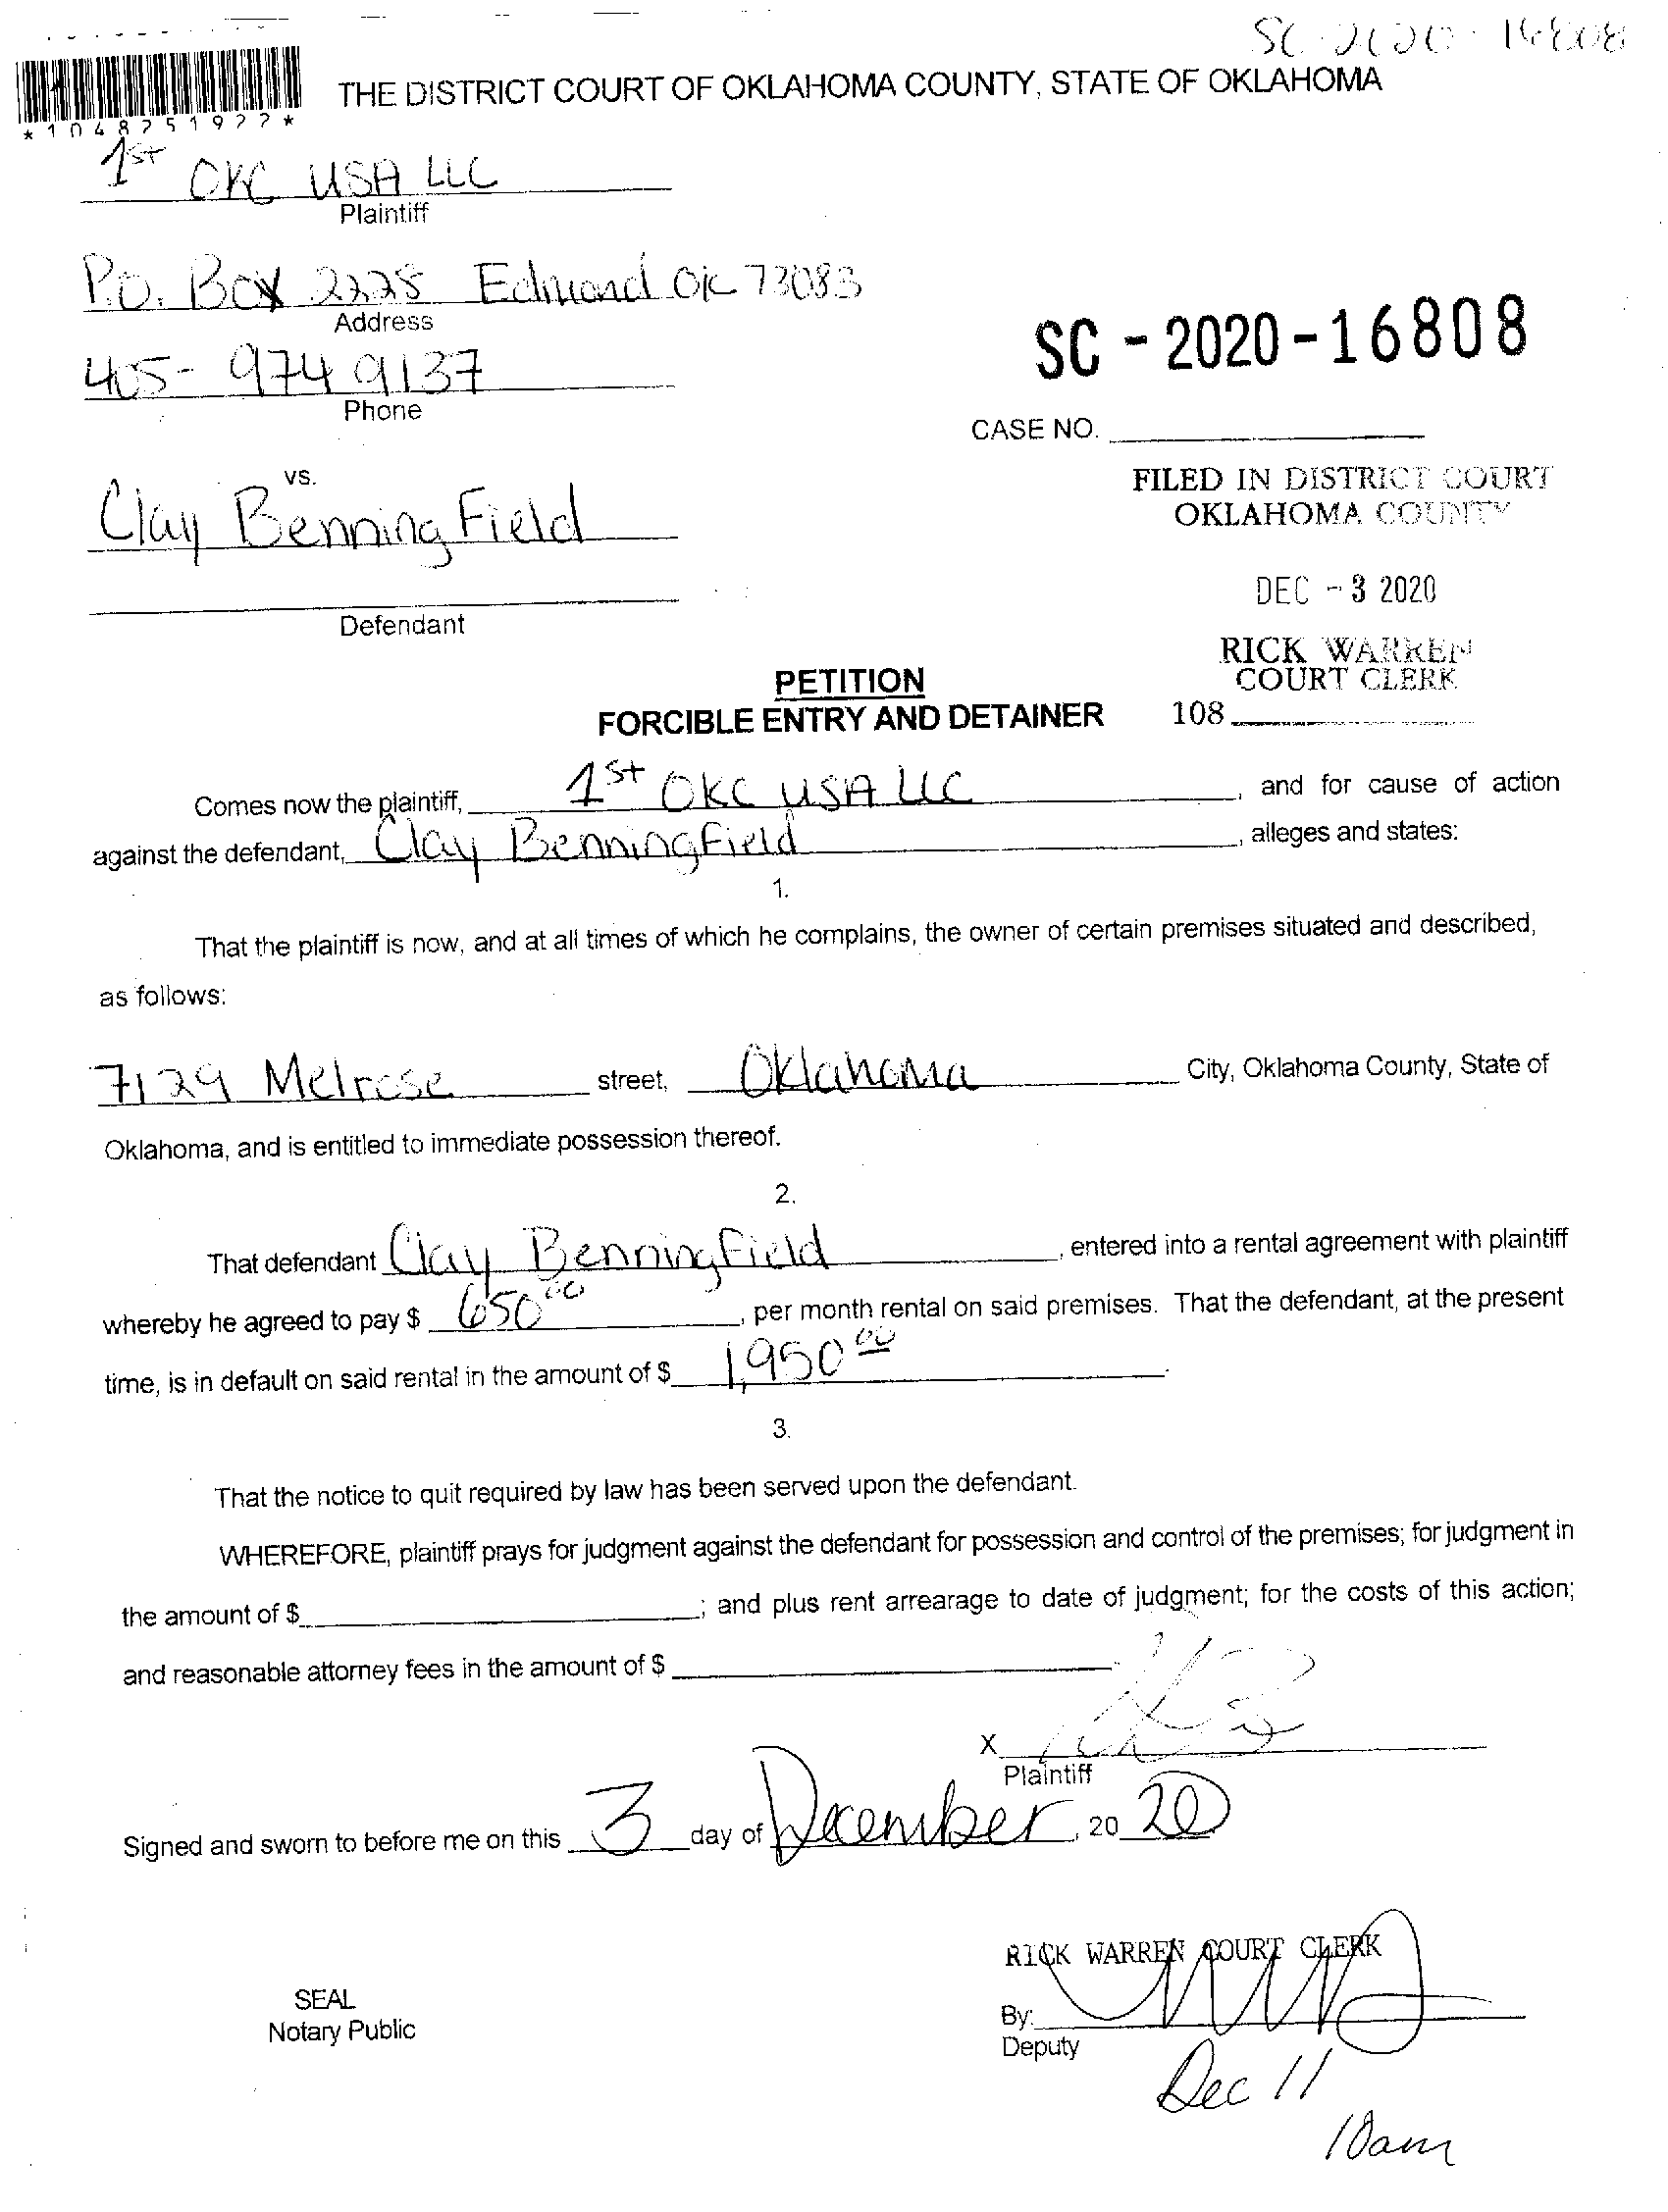 SC-2020-16808
THE DISTRICT COURT OF OKLAHOMA COUNTY, STATE OF OKLAHOMA
*1048751977*
1st OKC USA LLC
Plaintiff
P.O. Box 2228 Edmond OK 73083
Address
SC-2020-16808
405-974 9137
Phone
CASE NO.
vs.
FILED IN DISTRICT COURT
OKLAHOMA COUNTY
Clay Benningfield
DEC -3 2020
Defendant
RICK WARREN
COURT CLERK
PETITION
FORCIBLE ENTRY AND DETAINER
108
Comes now the plaintiff, 1st OKC USA LLC, and for cause of action
against the defendant, Clay Benningfield, alleges and states:
1.
That the plaintiff is now, and at all times of which he complains, the owner of certain premises situated and described,
as follows:
7129 Melrose street, Oklahoma City, Oklahoma County, State of
Oklahoma, and is entitled to immediate possession thereof.
2.
That defendant Clay Benningfield, entered into a rental agreement with plaintiff
whereby he agreed to pay $ 650 00, per month rental on said premises. That the defendant, at the present
time, is in default on said rental in the amount of $ 1,950 00.
3.
That the notice to quit required by law has been served upon the defendant.
WHEREFORE, plaintiff prays for judgment against the defendant for possession and control of the premises; for judgment in
the amount of $ ; and plus rent arrearage to date of judgment; for the costs of this action;
and reasonable attorney fees in the amount of $ .
X
Plaintiff
Signed and sworn to before me on this 3 day of December, 20 20
RICK WARREN COURT CLERK
SEAL
Notary Public
By:
Deputy
Dec 11
10am